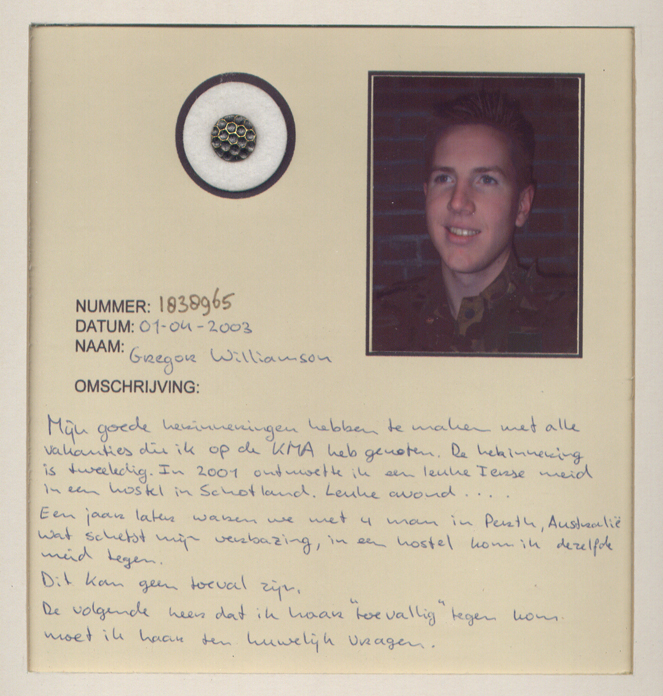 NUMMER: 1838965
DATUM: 01-04-2003
NAAM: Gregor Williamson
OMSCHRIJVING:
Mijn goede herinneringen hebben te maken met alle
vakanties die ik op de KMA heb genoten. De herinnering
is tweeledig. In 2001 ontmoette ik een leuke Ierse meid
in een hostel in Schotland. Leuke avond....
Een jaar later waren we met 4 man in Perth, Australië
wat schetst mijn verbazing, in een hostel kom ik dezelfde
meid tegen.
Dit kan geen toeval zijn.
De volgende keer dat ik haar "toevallig" tegen kom
moet ik haar ten huwelijk vragen.